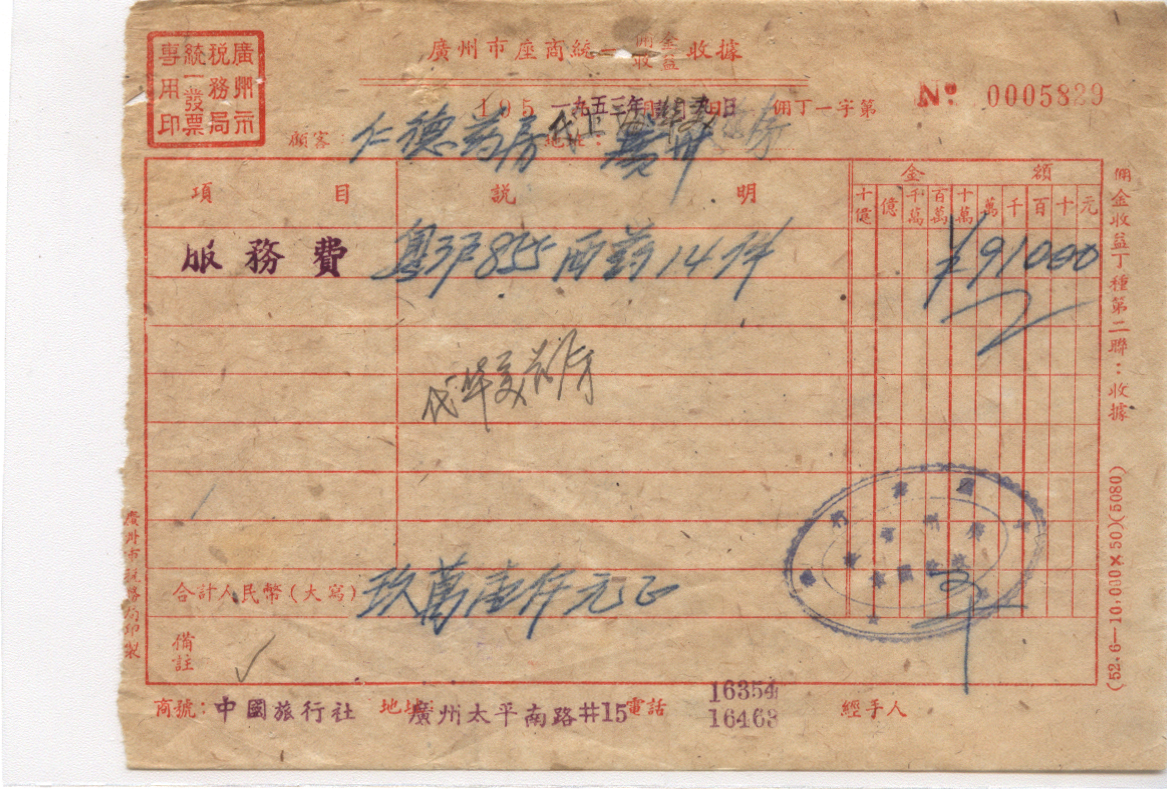 廣州市稅務局統一發票專用印
廣州市座商統一佣金收益收據
195 一九五三年 月 九日 佣丁一字第 № 0005829
顧客: 仁德药房 地址: 廣州
項目 説明 金額
十億 億 千萬 百萬 十萬 萬 千 百 十 元
服務費 粤沪855西药14件 ¥91000
代华美药房
合計人民幣(大寫) 玖萬壹仟元正
備註
商號: 中國旅行社 地址: 廣州太平南路廿15 電話 16354 16463 經手人
佣金收益丁種第二聯:收據
(52.6—10,000×50)(5080)
廣州市稅務局印製